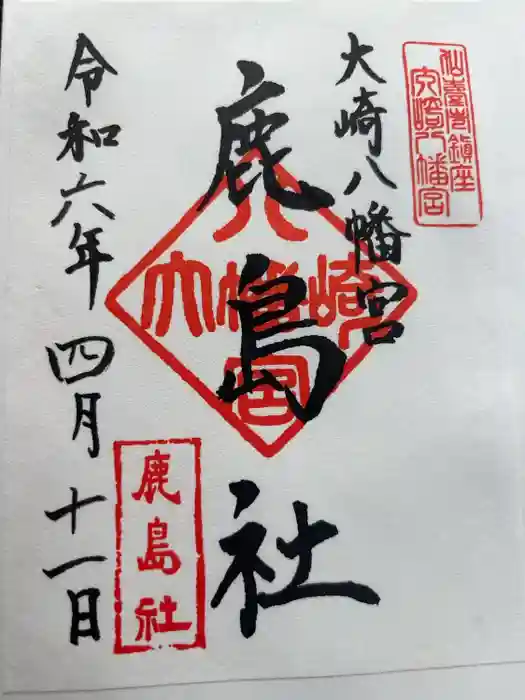 仙臺市鎮座
大崎八幡宮
大崎八幡宮
鹿島社
八
大幡崎
宮
鹿島社
令和六年四月十一日